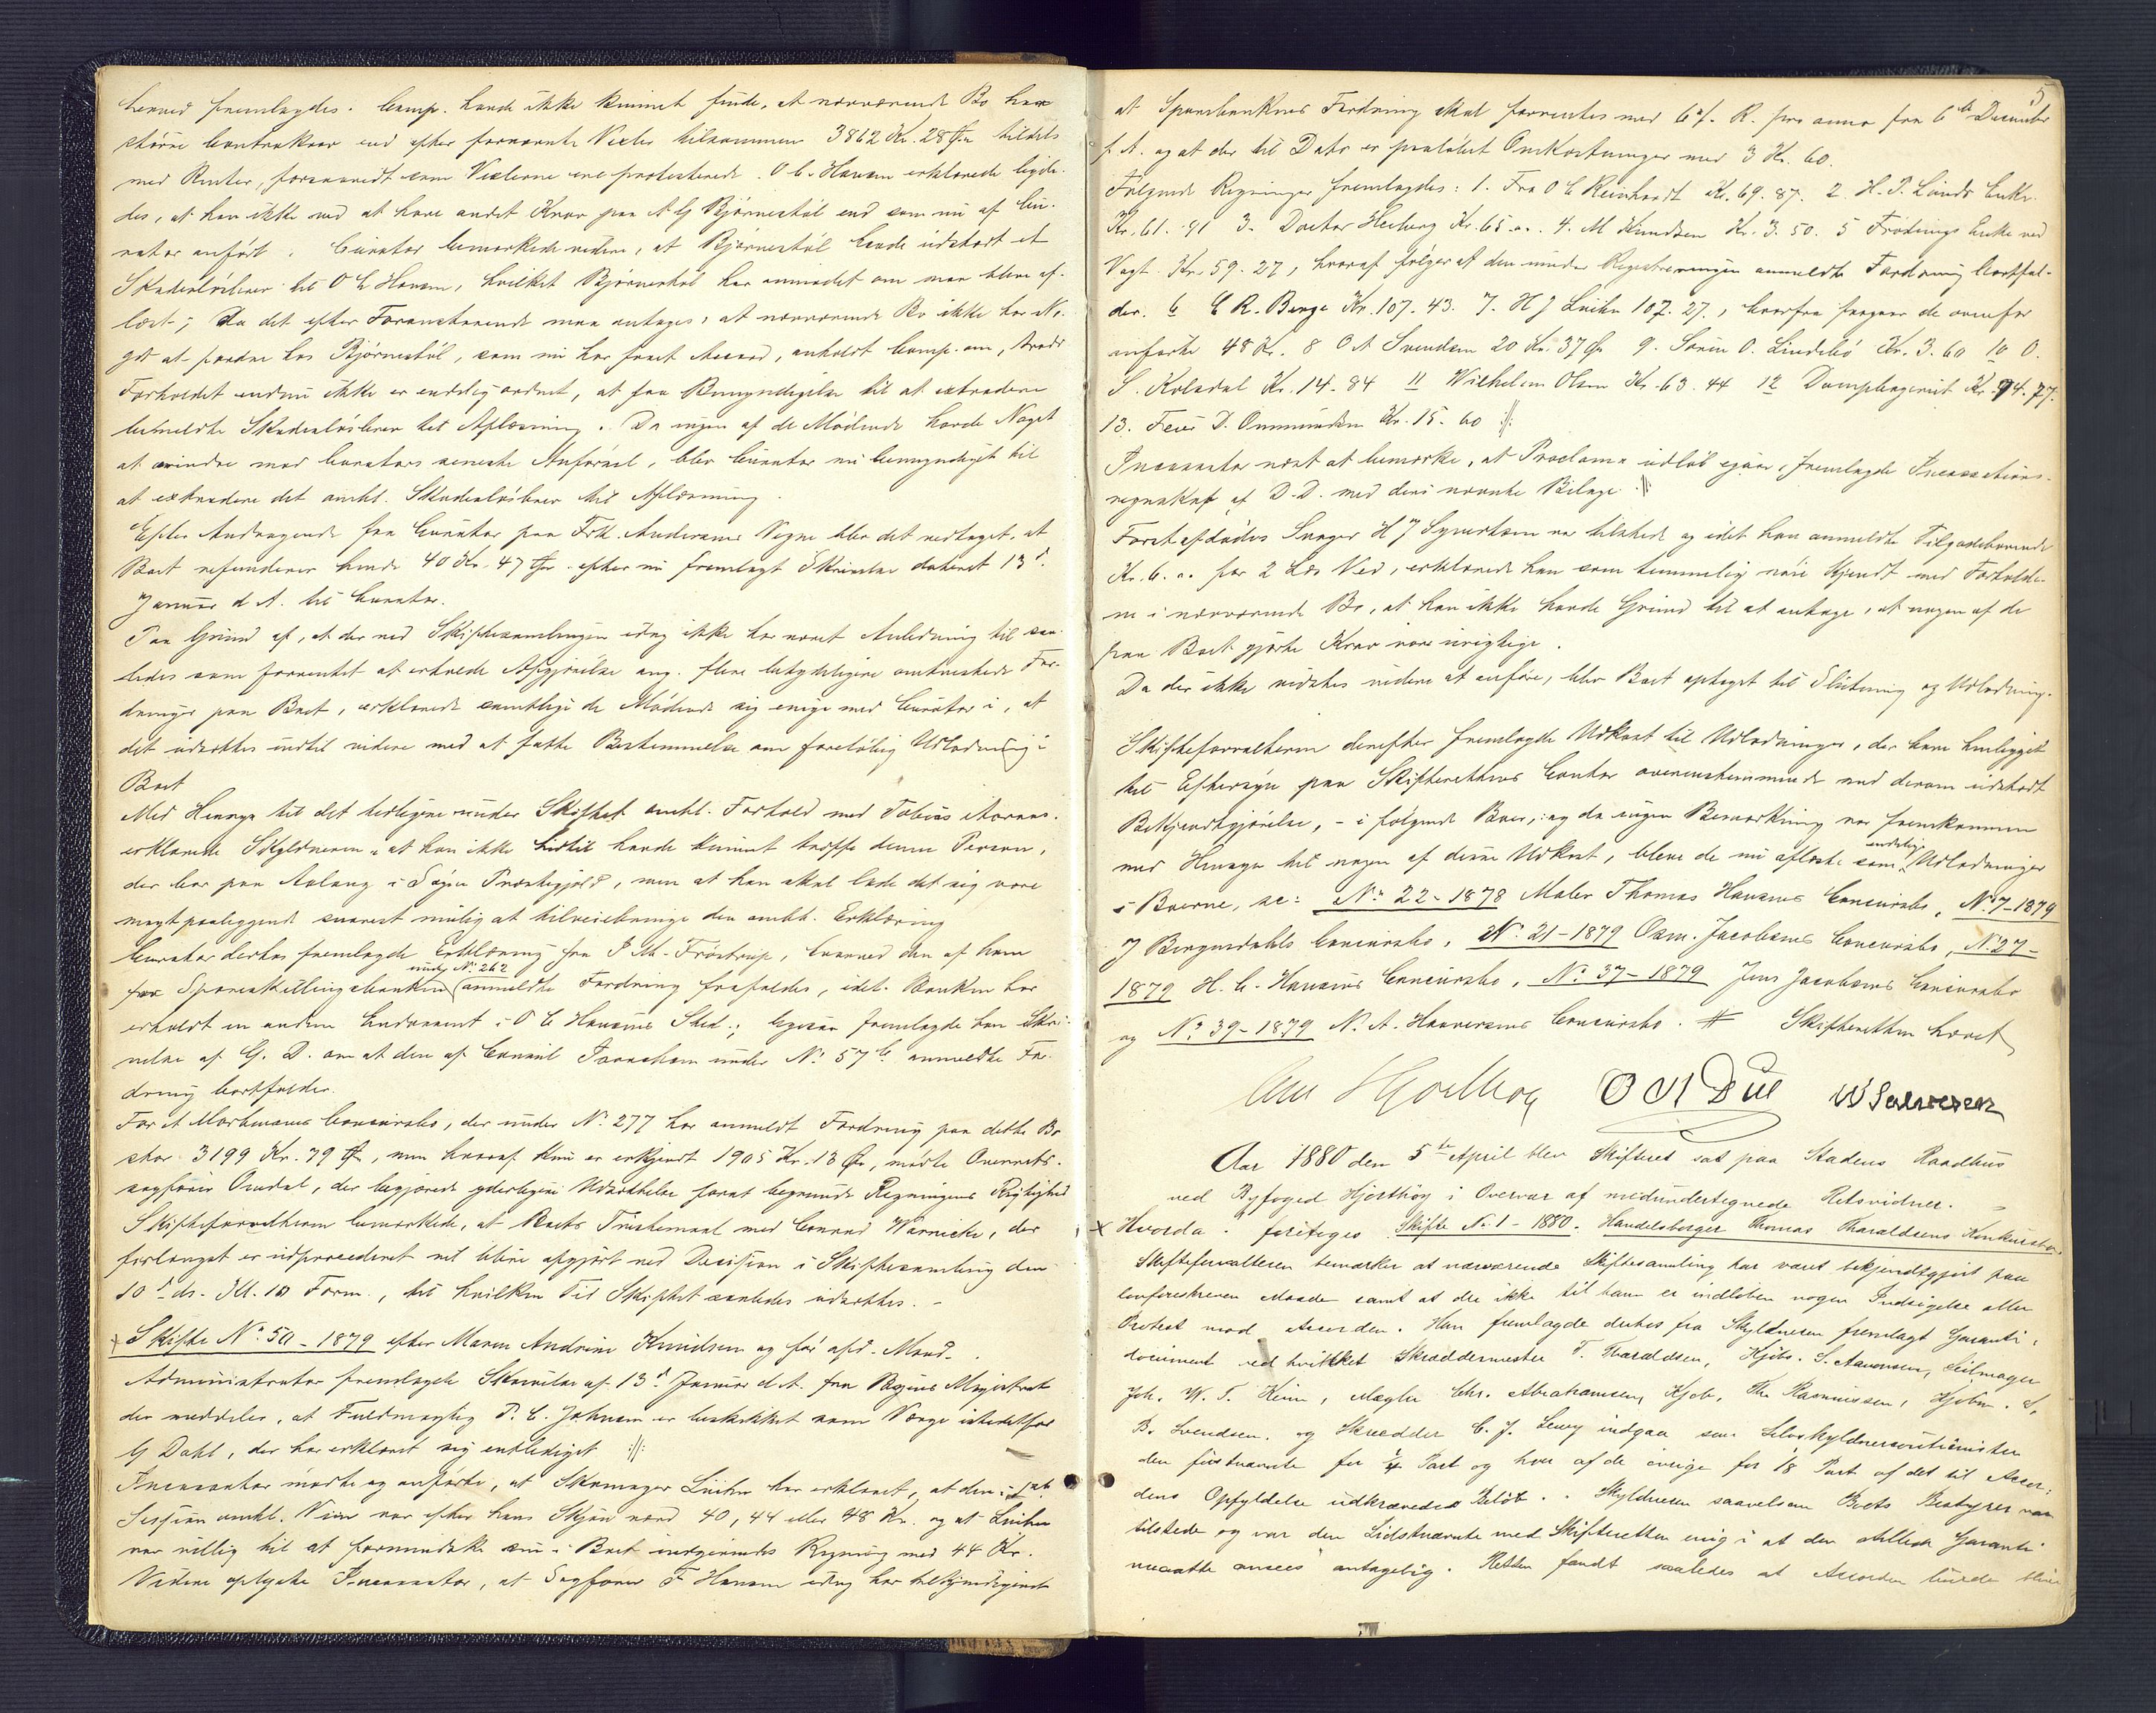 herved fremlagdes. Comp. havde ikke kunnet finde, at nærværende Bo har
større Contrakrav end efter fornævnte Vexler tilsammen 3862 Kr. 28 Øre tildels
med Renter, forsaavidt som Vexlerne ere protesterede. O C. Hansen erklærede ligele-
des, at han ikke ved at have andet Krav paa A G Bjørnestøl end som nu af Cu-
rator anført. Curator bemærkede videre, at Bjørnestøl havde udstedt et
Skadesløsbrev til O C Hansen, hvilket Bjørnestøl har anmodet om maa blive af-
læst; Da det efter Foranstaaende maa antages, at nærværende Bo ikke har No-
get at fordre hos Bjørnestøl, som nu har faaet Accord, anholdt Comp. om, trods
Forholdet endnu ikke er endelig ordnet, at faa Bemyndigelse til at extradere
bemeldte Skadesløsbrev til Aflæsning. Da ingen af de Mødende havde Noget
at erindre mod Curators seneste Anførsel, blev Curator nu bemyndiget til
at extradere det omhl. Skadesløsbrev til Aflæsning.
Efter Andragende fra Curator paa Frk. Andersens Vegne blev det vedtaget, at
Boet refunderer hende 40 Kr. 47 Øre efter nu fremlagt Skrivelse dateret 13d
Januar d A. til Curator.
Paa Grund af, at der ved Skiftesamlingen idag ikke har været Anledning til saa-
ledes som forventet at erhverve Afgjørelse ang. flere betydeligere omtvistede For-
dringer paa Boet, erklærede samtlige de Mødende sig enige med Curator i, at
det udsættes indtil videre med at fatte Bestemmelse om foreløbig Udlodning i
Boet
Med Hensyn til det tidligere under Skiftet omhl. Forhold med Tobias
erklærede Skyldneren at han ikke hidtil havde kunnet træffe denne Person,
der bor paa i Søgne Præstegjeld, men at han skal lade det sig være
magtpaaliggende snarest mulig at tilveiebringe den omhl. Erklæring
Curator derhos fremlagde Erklæring fra J M. Frøstrup, hvorved den af ham
for Spareskillingsbanken under No 262 anmeldte Fordring frafaldes, idet Banken har
erholdt en anden Endossent i O C Hansens Sted.; Ligesaa fremlagde han Skri-
velse af G. D. om at den af Consul under No 57 b anmeldte For-
dring bortfalder.
For A Mortensens Concursbo, der under No 277 har anmeldt Fordring paa dette Bo
stor 3199 Kr. 79 Øre, men hvoraf kun er erkjendt 1905 Kr. 13 Øre, mødte Overrets-
sagfører Omdal, der begjærede yderligere Udsættelse forat begrunde Regningens Rigtighed
Skifteforvalteren bemærkede, at Boets Tvistemaal med Conrad Warnicke, der
forlængst er udprocederet vil blive afgjort ved Decision i Skiftesamling den
10d ds. Kl. 10 Form., til hvilken Tid Skiftet saaledes udsættes. –
Skifte No 50 - 1879 efter Maren Andrine Knudsen og før afd. Mand.
Administrator fremlagde Skrivelse af 13d Januar d A. fra Byens Magistrat
der meddeler, at Fuldmægtig P. C. Johnsen er beskikket som Værge istedetfor
G Dahl, der har erklæret sig entlediget :/:
Incassator mødte og anførte, at Skomager Luihn har erklæret, at den i sidste
Session omhl. Viin var efter hans Skjøn værd 40, 44 eller 48 Kr. og at Luihn
var villig til at formindske sin i Boet indgivendes Regning med 44 Kr.
Videre oplyste Incassator, at Sagfører F Hansen idag har tilkjendegivet
5
at Sparebankens Fordring skal forrentes med 6 % R. pro anno fra 6te December
f. A. og at der til Dato er paaløbet Omkostninger med 3 Kr. 60.
Følgende Regninger fremlagdes: 1. Fra O C Reinhardt Kr. 69. 87. 2. H. P. Lunds Enke
Kr. 61. 91 3. Doctor Heiberg Kr. 65 „. 4. M Knudsen Kr. 3. 50. 5 Frødings Enke ved
Vogt Kr. 59. 27, hvoraf følger at den under Registreringen anmeldte Fordring bortfal-
der. 6 C R. Berge Kr. 107. 43. 7. H J Luihn 107. 27., hvorfra fragaar de ovenfor
anførte 48 Kr. 8 O A Svendsen 20 Kr. 37 Øre 9. Søren O. Lindebø Kr. 3. 60 10 O.
S. Kolsdal Kr. 14. 84 11 Wilhelm Olsen Kr. 63. 44 12 Kr. 94. 77.
13. D. Ommundsen Kr. 15. 60 :/:
Incassator næst at bemærke, at Proclama udløb igaar, fremlagde Incassations-
regnskab af D. D. med deri nævnte Bilage :/:
Forst afdødes Svoger H J Syvertsen var tilstede og idet han anmeldte Tilgodehavende
Kr. 6. „. for 2 Læs Ved, erklærede han som temmelig nøie kjendt med Forholde-
ne i nærværende Bo, at han ikke havde Grund til at antage, at nogen af de
paa Boet gjorte Krav vare urigtige.
Da der ikke vidstes videre at anføre, blev Boet optaget til Slutning og Udlodning.
Skifteforvalteren derefter fremlagde Udkast til Udlodninger, der have henligget
til Eftersyn paa Skifterettens Contor overensstemmende med derom udstedt
Bekjendtgjørelse, – i følgende Boer, og da ingen Bemærkning var fremkommen
med Hensyn til nogen af disse Udkast, bleve de nu aflæste som endelig Udlodninger
i Boerne, sc: No 22 - 1878 Maler Thomas Hansens Concursbo, No 7 - 1879
J Bergersdahls Concursbo, No 21 - 1879 Osm. Jacobsens Concursbo, No 27 -
1879 H. C. Hansens Concursbo, No 37 - 1879 Jens Jacobsens Concursbo
og No 39 - 1879 N. A. Haaversens Concursbo. # Skifteretten hævet
Chr Hjorthøy O A Due W Salvesen
Aar 1880 den 5te April blev Skifteret sat paa Stadens Raadhus
ved Byfoged Hjorthøy i Overvær af medundertegnede Retsvidner. –
x Hvorda: foretoges Skifte No 1 - 1880. Handelsborger Thomas Tharaldsens Konkursbo.
Skifteforvalteren bemærker at nærværende Skiftesamling har været bekjendtgjort paa
lovforeskreven Maade samt at der ikke til ham er indløben nogen Indsigelse eller
Protest mod Accorden. Han fremlagde derhos fra Skyldneren fremlagt Garanti-
document ved hvilket Skræddermester T. Tharaldsen, Kjøbm. S. Aanonsen, Seilmager
Joh. W. T. Heim, Mægler Chr. Abrahamsen, Kjøb. Ths Rasmussen, Kjøbm. S.
B. Svendsen. og Skrædder C. J. Lewy indgaa som Selvskyldnercautionister
den førstnævnte for 1/4 Part og hver af de øvrige for 1/8 Part af det til Accor-
dens Opfyldelse udkrævedes Beløb. . Skyldneren saavelsom Boets Bestyrer var
tilstede og var den Sidstnævnte med Skifteretten enig i at den stillede Garanti
maatte ansees antagelig. Retten fandt saaledes at Accorden burde blive